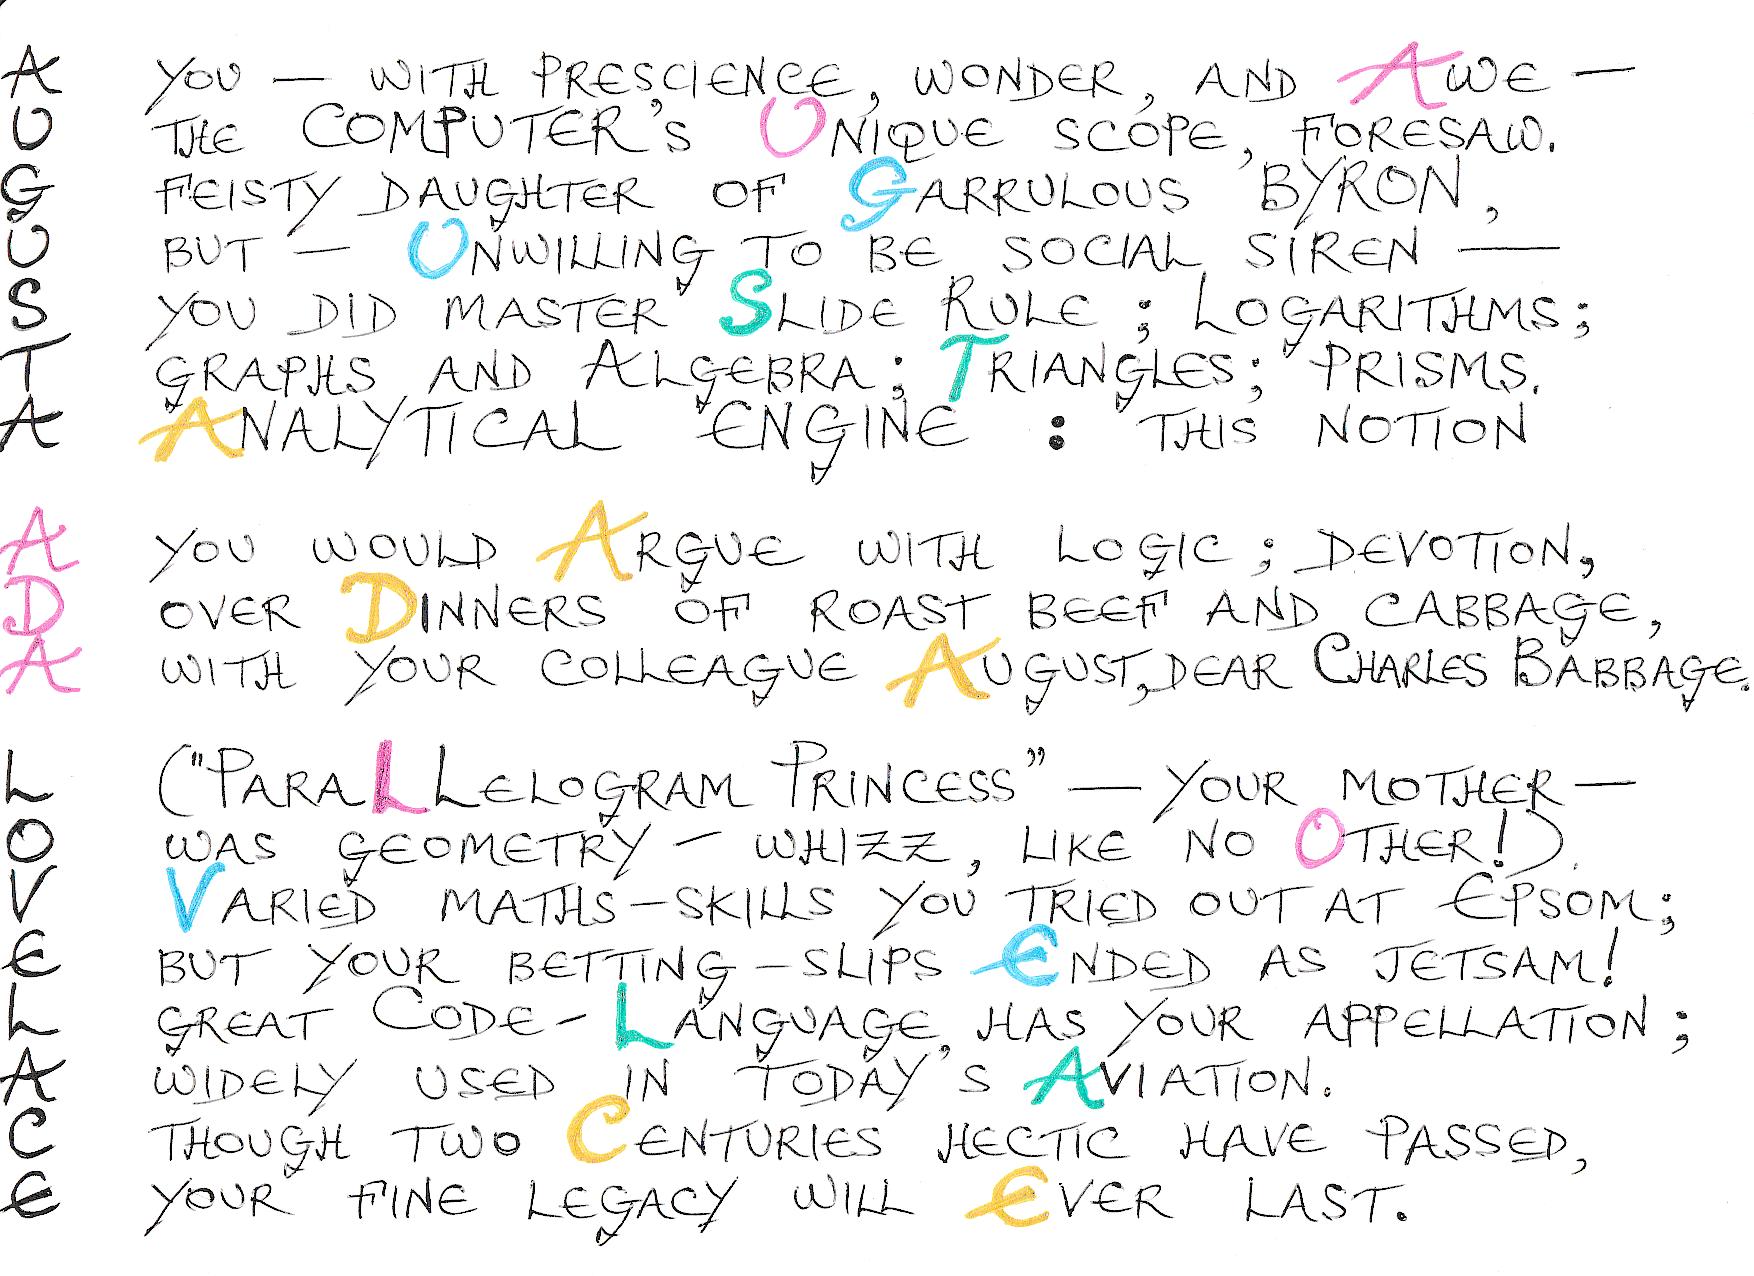 A YOU — WITH PRESCIENCE, WONDER, AND AWE —
U THE COMPUTER'S UNIQUE SCOPE, FORESAW.
G FEISTY DAUGHTER OF GARRULOUS BYRON,
U BUT — UNWILLING TO BE SOCIAL SIREN —
S YOU DID MASTER SLIDE RULE; LOGARITHMS;
T GRAPHS AND ALGEBRA; TRIANGLES; PRISMS.
A ANALYTICAL ENGINE: THIS NOTION
A YOU WOULD ARGUE WITH LOGIC; DEVOTION,
D OVER DINNERS OF ROAST BEEF AND CABBAGE,
A WITH YOUR COLLEAGUE AUGUST, DEAR CHARLES BABBAGE.
L ("PARALLELOGRAM PRINCESS" — YOUR MOTHER —
O WAS GEOMETRY-WHIZZ, LIKE NO OTHER!).
V VARIED MATHS-SKILLS YOU TRIED OUT AT EPSOM;
E BUT YOUR BETTING-SLIPS ENDED AS JETSAM!
L GREAT CODE-LANGUAGE, HAS YOUR APPELLATION;
A WIDELY USED IN TODAY'S AVIATION.
C THOUGH TWO CENTURIES HECTIC HAVE PASSED,
E YOUR FINE LEGACY WILL EVER LAST.